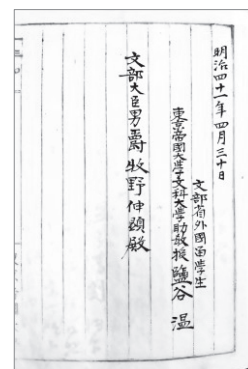 明治四十一年四月三十日
文部省外國留學生
東京帝國大學文科大學助教授 鹽谷 温
文部大臣男爵 牧野伸顕殿